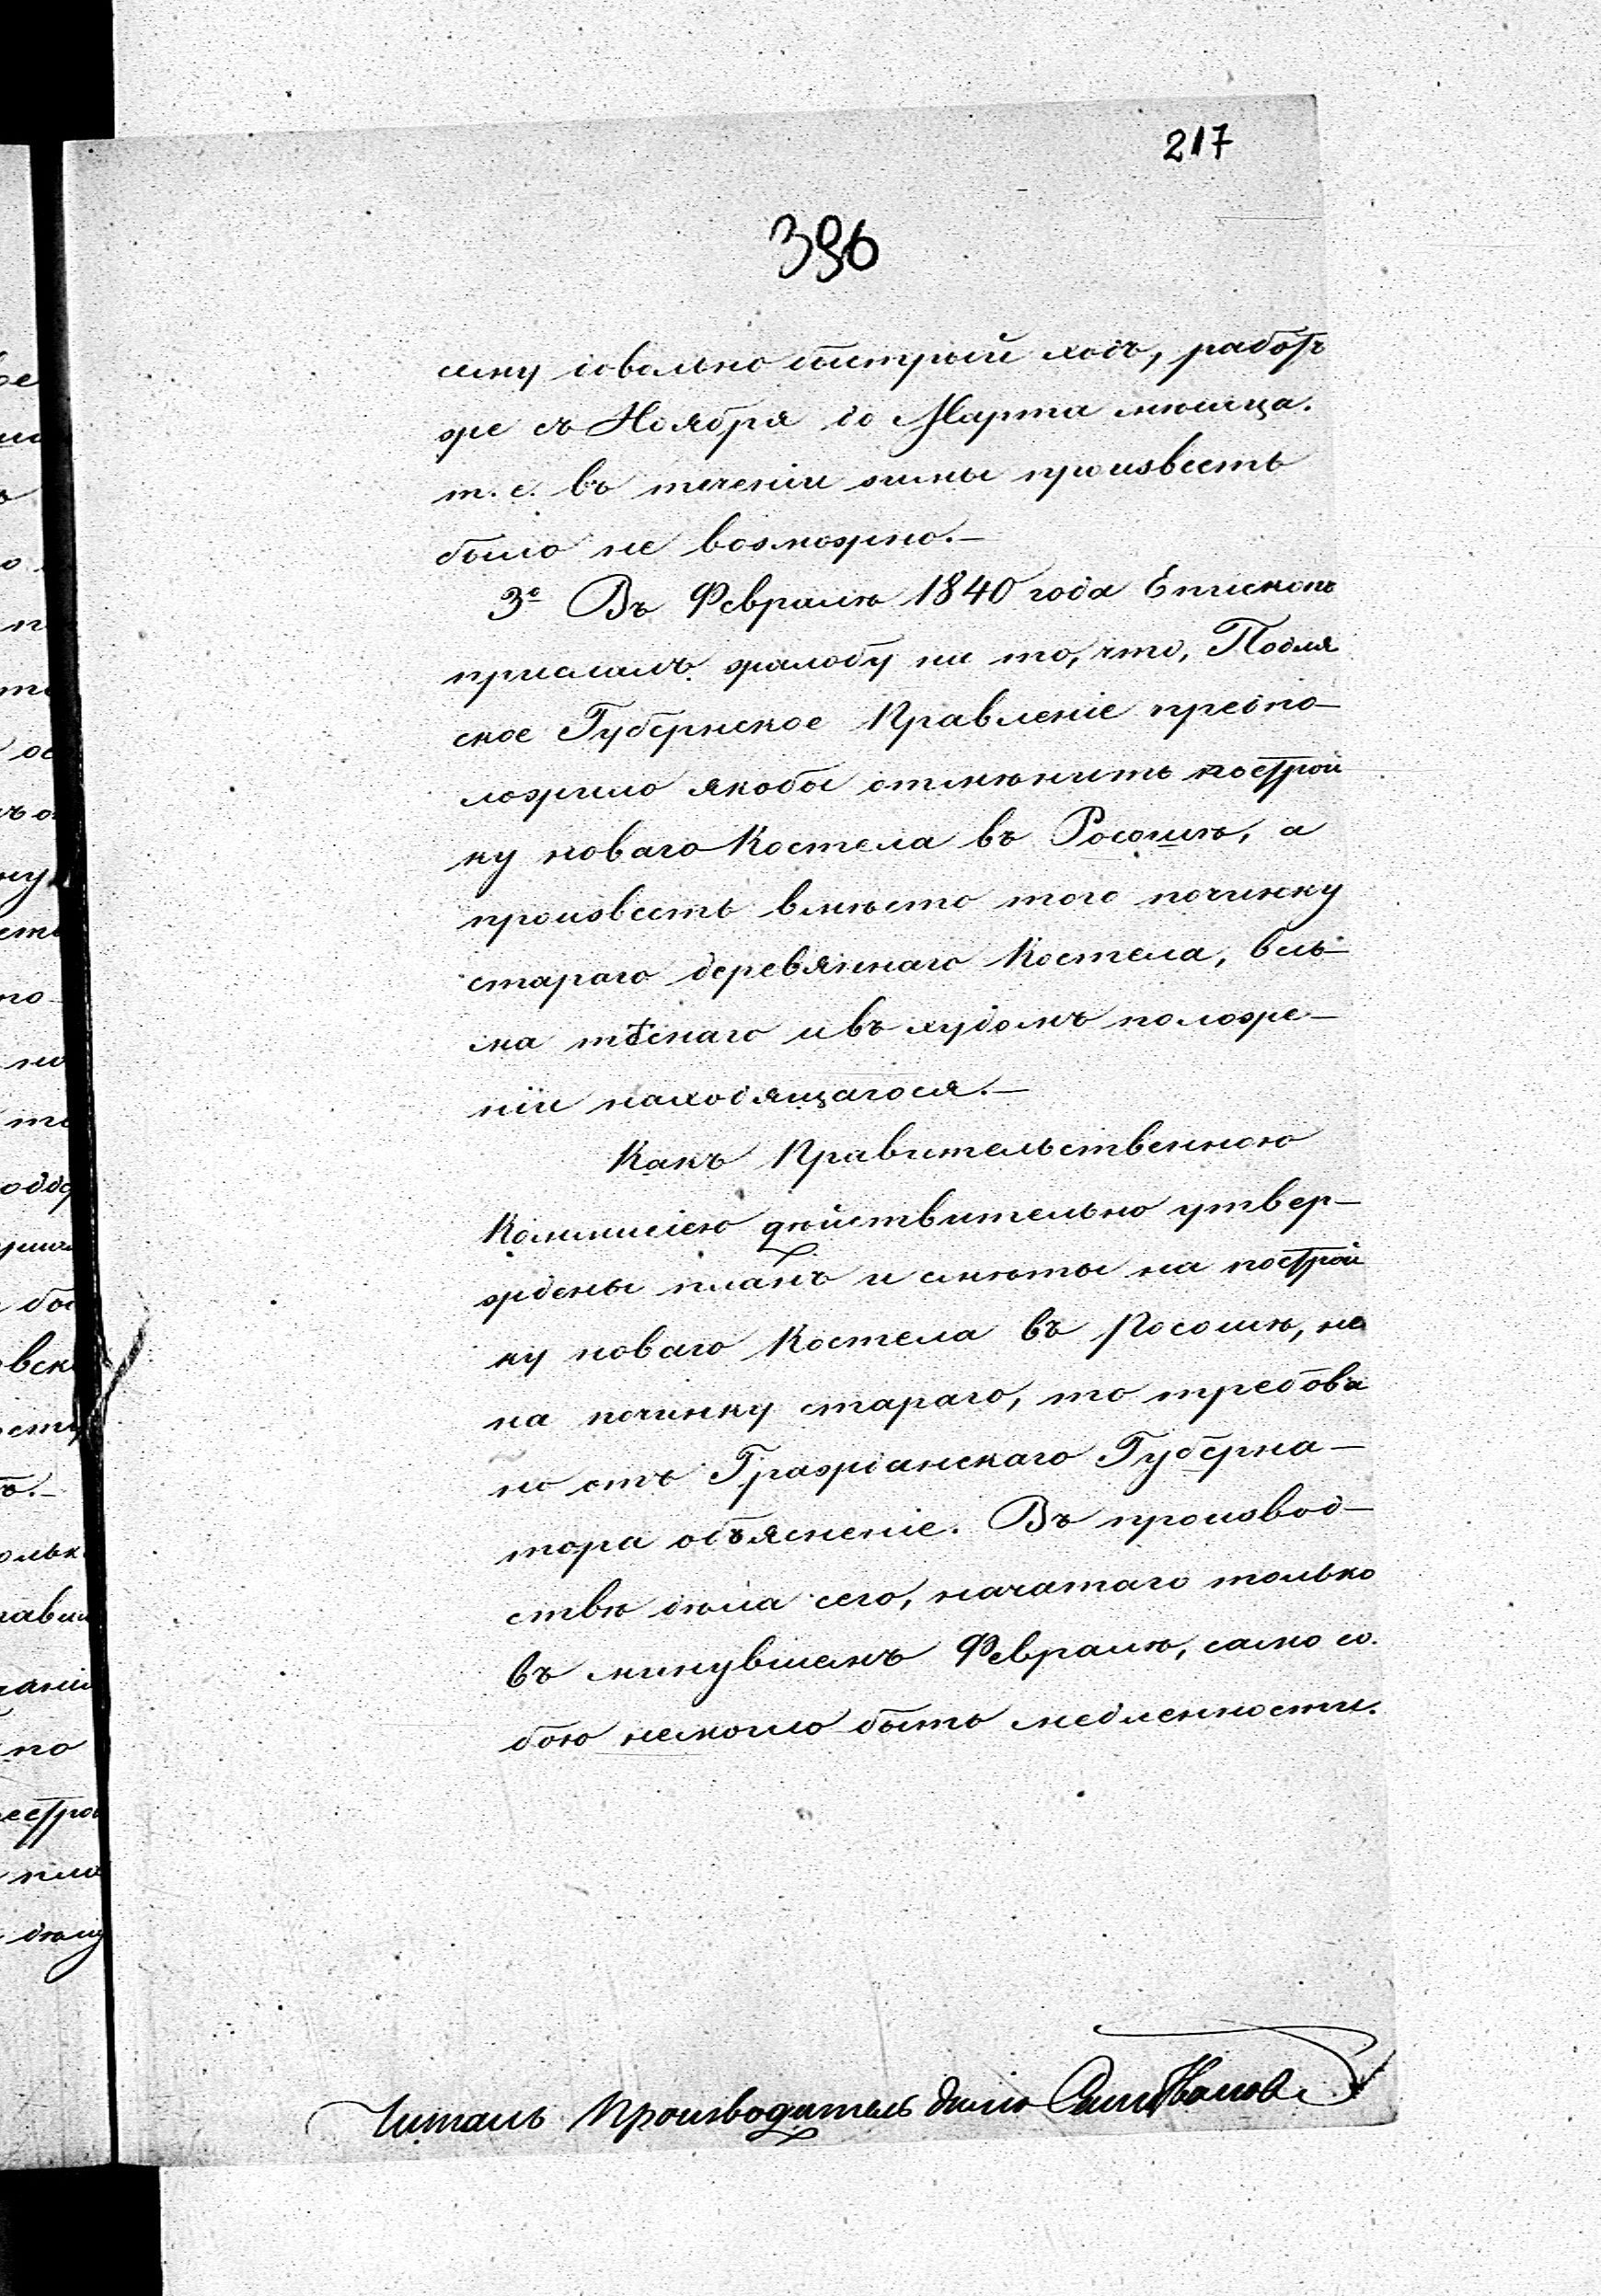 217
396
сему довольно быстрый ходъ, работъ
же съ Ноября до Марта мѣсяца.
т. е. въ теченіи зимы произвесть
было не возможно.—
3е Въ Февралѣ 1840 года Епископъ
прислалъ жалобу на то, что, Подля
ское Губернское Правленіе предпо—
ложило якобы отмѣнить построй
ку новаго Костела въ Росошѣ, а
произвесть вмѣсто того починку
стараго деревяннаго Костела, весь—
ма тѣснаго и въ худомъ положе—
ніи находящагося.—
Какъ Правительственною
Коммисіею дѣйствительно утвер—
ждены планъ и смѣты на построй
ку новаго Костела въ Росошѣ, не
на починку стараго, то требова
но отъ Гражданскаго Губерна—
тора объясненіе. Въ производ—
ствѣ дѣла сего, начатаго только
въ минувшемъ Февралѣ, само со.
бою немогло быть медленности.
Читалъ Производитель дѣлъ